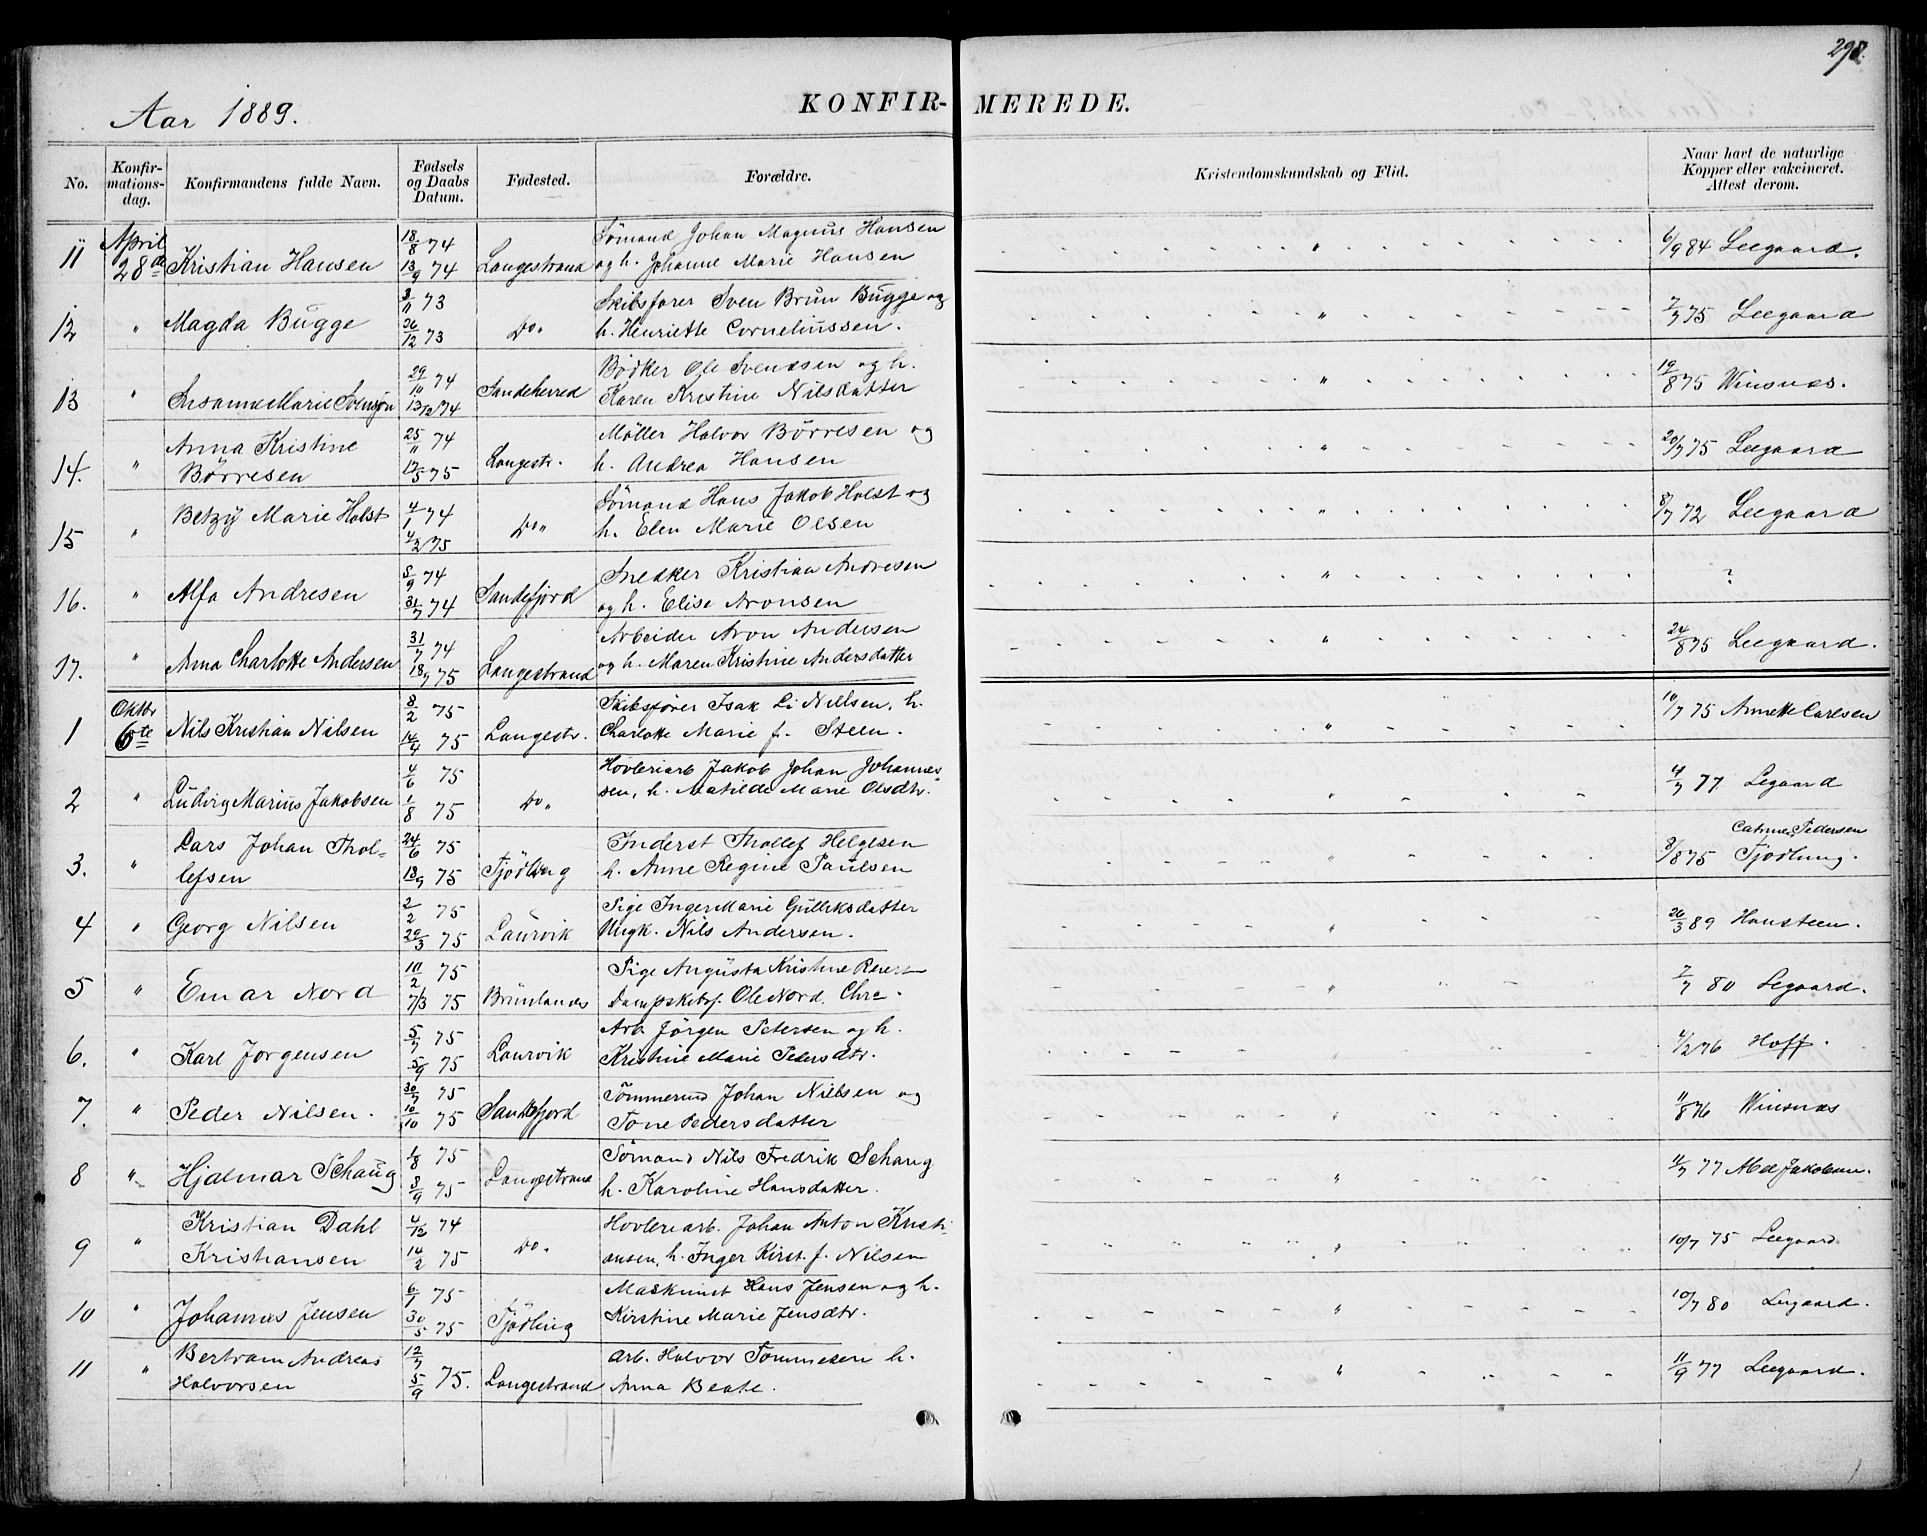 298.
Aar 1889.
KONFIR-MEREDE.
No. Konfirmationsdag. Konfirmandens fulde Navn. Fødsels og Daabs Datum. Fødested. Forældre. Kristendomskundskab og Flid. Naar havt de naturlige Kopper eller vakcineret. Attest derom.
April 18/8 74 Sömand Johan Magnus Hansen
11 28de Kristian Hansen 13/9 74 Langestrand og h. Johanne Marie Hansen " 6/9 84 Leegaard.
3/11 73 Skibsfører Sven Brun Bugge og
12 " Magda Bugge 26/12 73 Do " h. Henriette Corneliussen. " 7/7 75 Leegaard
29/10 74 Bödker Ole Svendsen og h.
13 " Susanne Marie Svensen 13/12 74 Sandeherred Karen Kristine Nilsdatter " 19/8 75 Winsnæs.
Anna Kristine 25/11 74 Möller Halvor Börresen og
14. " Börresen 17/5 75 Langestr. h. Andrea Hansen " 20/7 75 Leegaard
Betzy Marie Holst 4/1 74 Sömand Hans Jakob Holst og
15 " 4/2 75 Do " h. Elen Marie Olsen " 8/7 72 Leegaard
5/9 74 Snedker Kristian Andresen
16. " Alfa Andresen 31/7 74 Sandefjord og h. Elise Aronsen " ?
31/7 74 Arbeider Aron Andersen
17. " Anna Charlotte Andersen 18/7 75 Langestrand og h. Maren Kristine Andersdatter " 24/8 75 Leegaard.
Oktbr 8/2 75 Skibsfører Isak Li Nielsen, h.
1 6te Nils Kristian Nilsen 14/4 75 Langestr. Charlotte Marie f. Steen. " 10/7 75 Annette Carlsen
4/6 75 Hövleriarb Jakob Johan Johannes-
2 " Ludvig Marius Jakobsen 1/8 75 Do " sen, h. Matilde Marie Olsdtr. " 4/7 77 Legaard
Lars Johan Thol- 24/6 75 Inderst Thollef Helgesen Cathrine Pedersen
3. " lefsen 13/9 75 Tjödling h. Anne Regine Paulsen " 3/8 75 Tjødling.
2/2 75 Pige Inger Marie Gulliksdatter
4 " Georg Nilsen 29/3 75 Laurvik Ungk. Nils Andersen. " 26/3 89 Hansteen.
10/2 75 Pige Augusta Kristine
5 " Einar Nord 7/3 75 Brunlanæs Dampskibsf. Ole Nord. Chra. " 7/7 80 Legaard.
5/7 75 Arb Jörgen Petersen og h.
6. " Karl Jorgensen 5/9 75 Laurvik Kristine Marie Pedersdtr. " 4/2 76 Hoff.
30/7 75 Tömmermd Johan Nielsen og
7. " Peder Nilsen. 10/10 75 Sandefjord Tone Pedersdatter " 11/8 76 Winsnæs
1/8 75 Sömand Nils Fredrik Schaug
8 " Hjalmar Schaug 8/9 75 Langestrand h. Karoline Hansdatter. " 11/7 77 Mdl Jakobsen.
Kristian Dahl 4/12 74 Hovleriarb. Johan Anton Kristi-
9 " Kristiansen 14/2 75 Do. ansen, h. Inger Kirst. f. Nilsen " 10/7 75 Leegaard
6/1 75 Maskinist Hans Jensen og h.
10 " Johannes Jensen 30/5 75 Tjödling Kirstine Marie Jensdtr. " 10/7 80 Leegaard.
Bertram Andreas 12/7 Arb. Halvor Tommesen h.
11 " Halvorsen 5/9 75. Langestrand Anna Beate. " 11/9 77 Leegaard.